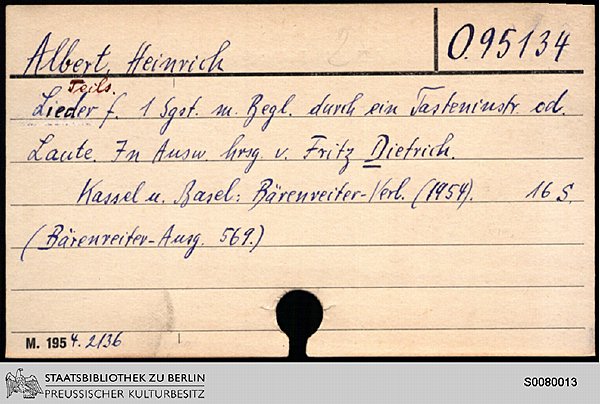 Albert, Heinrich
O.95134
Teils.
Lieder f. 1 Sgst. m. Begl. durch ein Tasteninstr. od.
Laute. In Ausw. hrsg. v. Fritz Dietrich.
Kassel u. Basel: Bärenreiter-Verl. (1954). 16 S.
(Bärenreiter-Ausg. 569.)
M. 1954. 2136
STAATSBIBLIOTHEK ZU BERLIN
PREUSSISCHER KULTURBESITZ
S0080013